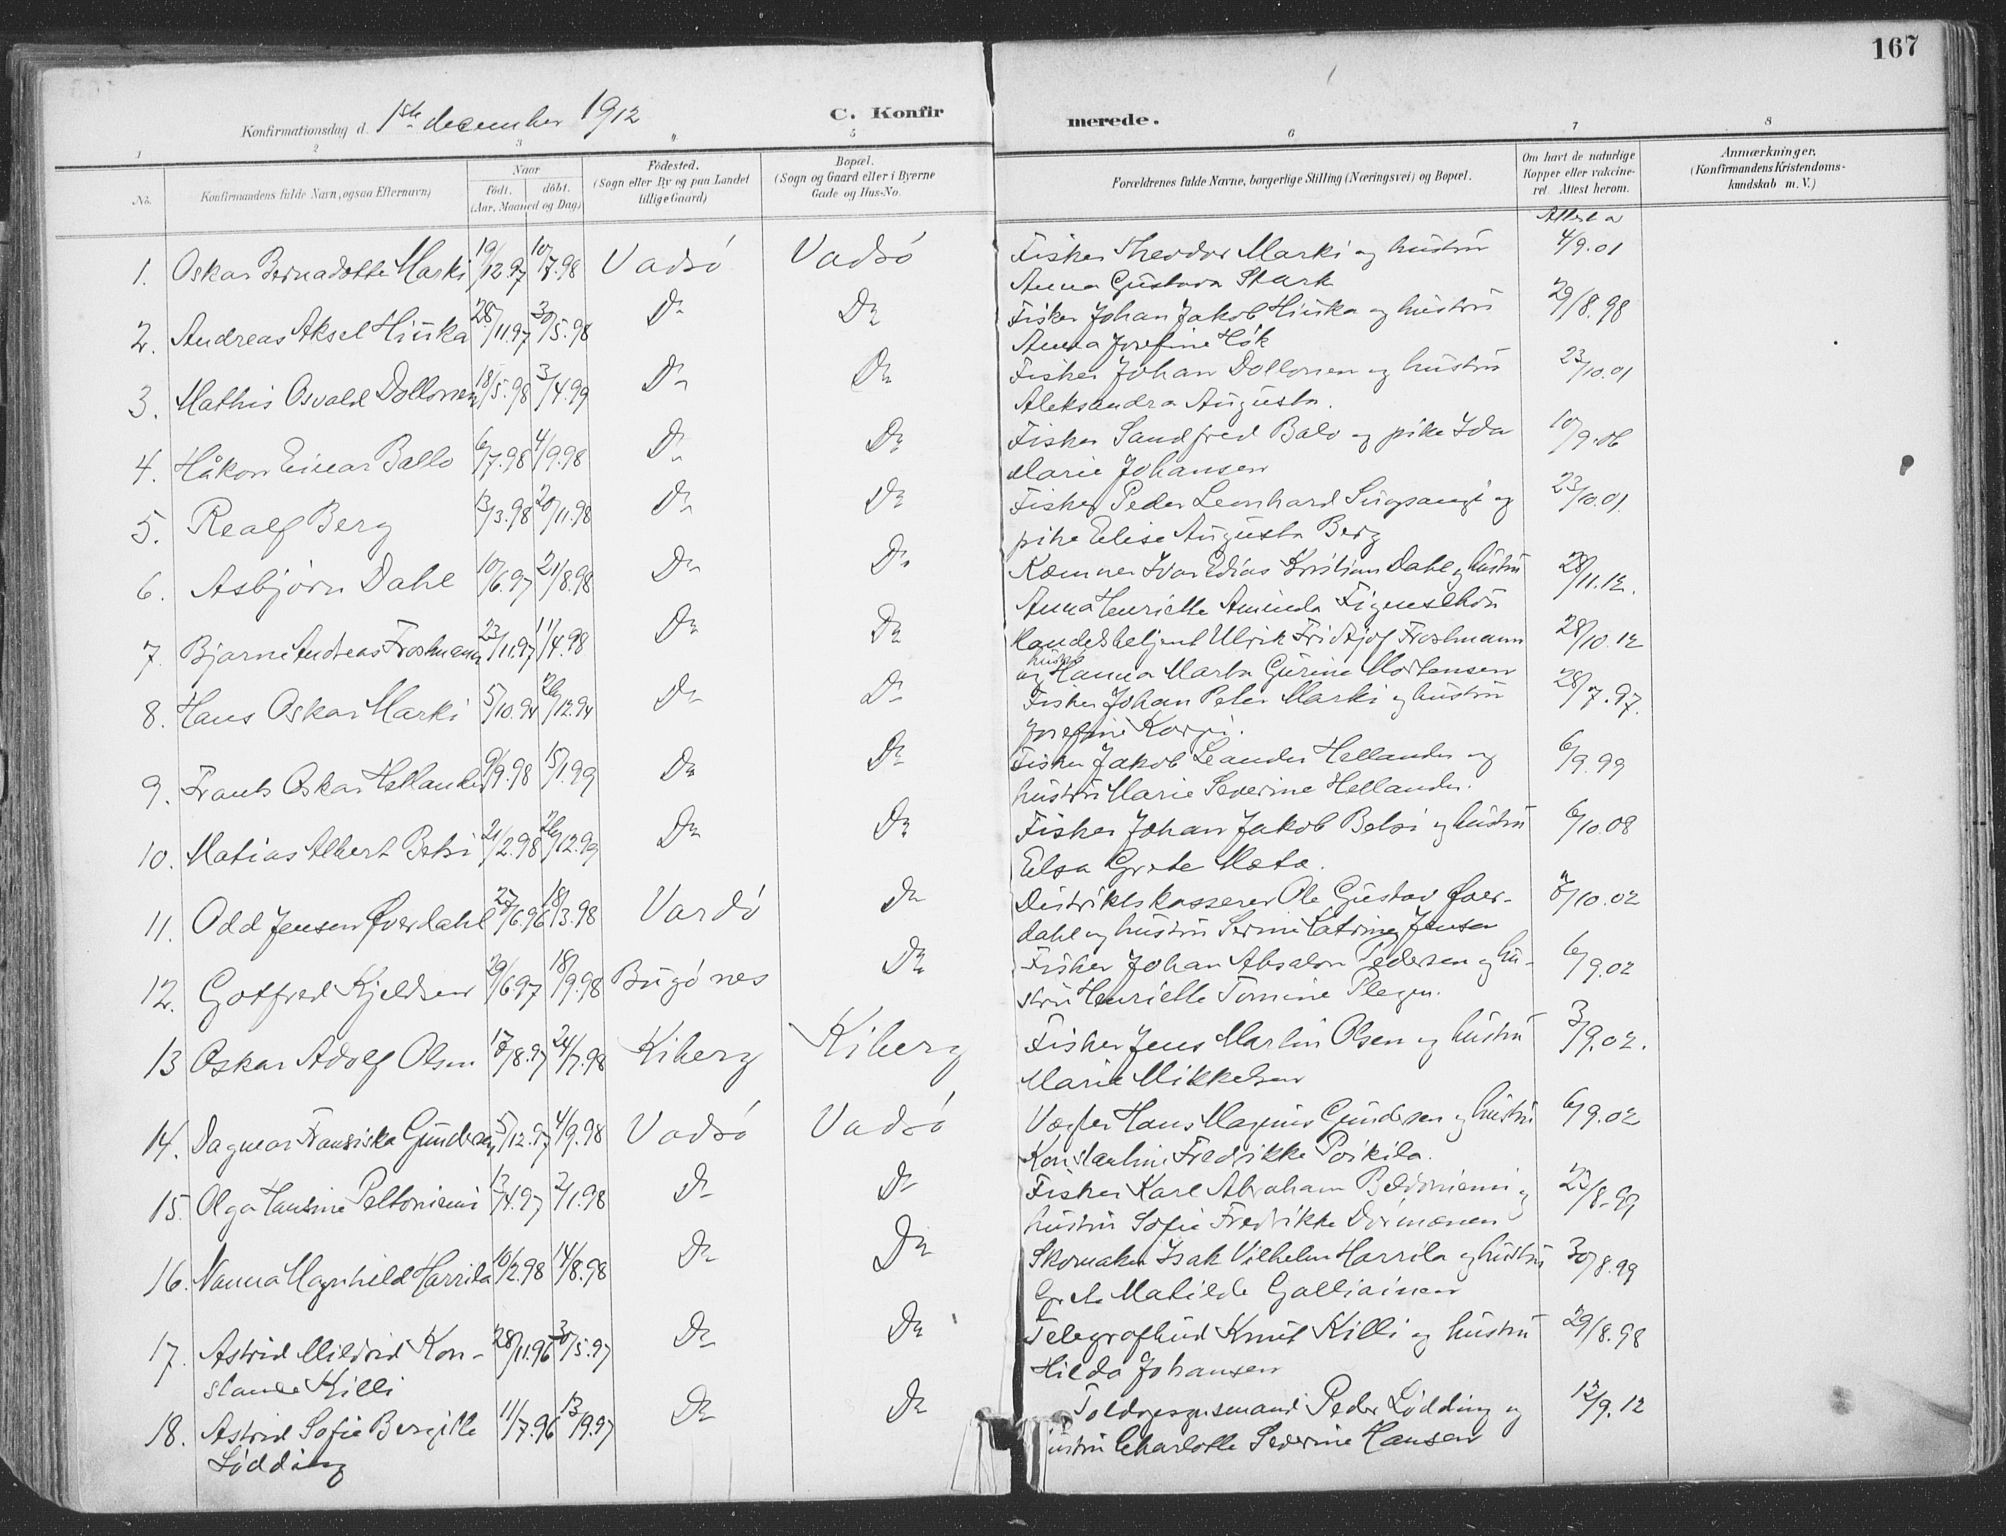 167
Konfirmationsdag d. 1ste december 1912
C. Konfirmerede.
1 2 3 5 6 7 8
No.
Konfirmandens fulde Navn, ogsaa Efternavn)
Naar
födt. döbt.
(Aar, Maaned og Dag)
Födested.
(Sogn eller By og paa Landet
tillige Gaard)
Bopæl.
(Sogn og Gaard eller i Byerne
Gade og Hus-No.
Forældrenes fulde Navne, borgerlige Stilling (Næringsvei) og Bopæl.
Om havt de naturlige
Kopper eller vakcine-
ret. Attest herom.
Anmærkninger,
(Konfirmandens Kristendoms-
kundskab m. V.)
Attest a
1. Oskar Bernadotte Marki 19/12.97 10/7.98 Vadsö Vadsö Fisker Theodor Marki og hustru 4/9.01
Anna Gustava Stark
2. Andreas Aksel Hiuka 28/11.97 30/5.98 Do Do Fisker Johan Jakob Hiuka og hustru 29/8.98
Anna Josefine Hök
3. Mathis Osvald Dollonen 18/5.98 3/4.99 Do Do Fisker Johan Dollonen og hustru 23/10.01
Aleksandra Augusta.
4. Håkon Einar Ballo 6/7.98 4/9.98 Do Do Fisker Sandfred Balo og pike Ida 10/9.06
Marie Johansen
5. Realf Berg 13/3.98 20/11.98 Do Do Fisker Peder Leonhard og 23/10.01.
pike Elise Augusta Berg
6. Asbjörn Dahl 10/6.97 21/8.98 Do Do Kæmner Ivar Edias Kristian Dahl og hustru 28/11.12.
Anna Henriette Aminda Figenschou
7. Bjarne Andreas Froshmann 23/11.97 11/4.98 Do Do Handelsbetjent Ulrik Fridtjof Froshmann 28/10.12
og hustru Hanna Marta Gurine Mortensen
8. Hans Oskar Marki 5/10.94 26/12.94 Do Do Fisker Johan Peter Marki og hustru 28/7.97.
Josefine Korpi.
9. Frants Oskar Hellander 9/9.98 15/1.99 Do Do Fisker Jakob Leander Hellander og 6/9.99
hustru Marie Severine Hellander.
10. Matias Albert Betsi 21/2.98 26/12.99 Do Do Fisker Johan Jakob Betsi og hustru 6/10.08
Elsa Grete Mæta.
11. Odd Jensen Överdahl 27/6.96 18/3.98 Vardö Do Distriktskasserer Ole Gustav Över- 8/10.02
dahl og hustru Serine Katrine Jensen
12. Gotfred Kjeldsen 29/6.97 18/9.98 Bugönes Do Fisker Johan Absalon Pedersen og hu- 6/9.02
stru Henriette Tomine Plegen.
13 Oskar Adolf Olsen 17/8.97 24/7.98 Kiberg Kiberg Fisker Jens Martin Olsen og hustru 3/9.02.
Marie Mikkelsen
14. Dagmar Fransiska Gundersen 5/12.97 4/9.98 Vadsö Vadsö Vægter Hans Magnus Gundersen og hustru 6/9.02
Konstantine Fredrikke Poikila.
15. Olga Hansine Peltoniemi 13/4.97 2/1.98 Do Do Fisker Karl Abraham og 23/8.99
hustru Sofie Fredrikke Dormænen
16. Nanna Magnhild Harrila 10/2.98 14/8.98 Do Do Skomaker Isak Vilhelm Harrila og hustru 30/8.99
Matilde Galliainen
17. Astrid Mildrid Kon- 28/11.96 30/5.97 Do Do Telegrafbud Knut Killi og hustru 29/8.98
stanse Killi Hilda Johansen
18. Astrid Sofie Bergitte 11/7.96 13/9.97 Do Do Peder Lödding og 12/9.12
Lödding hustru Charlotte Severine Hansen